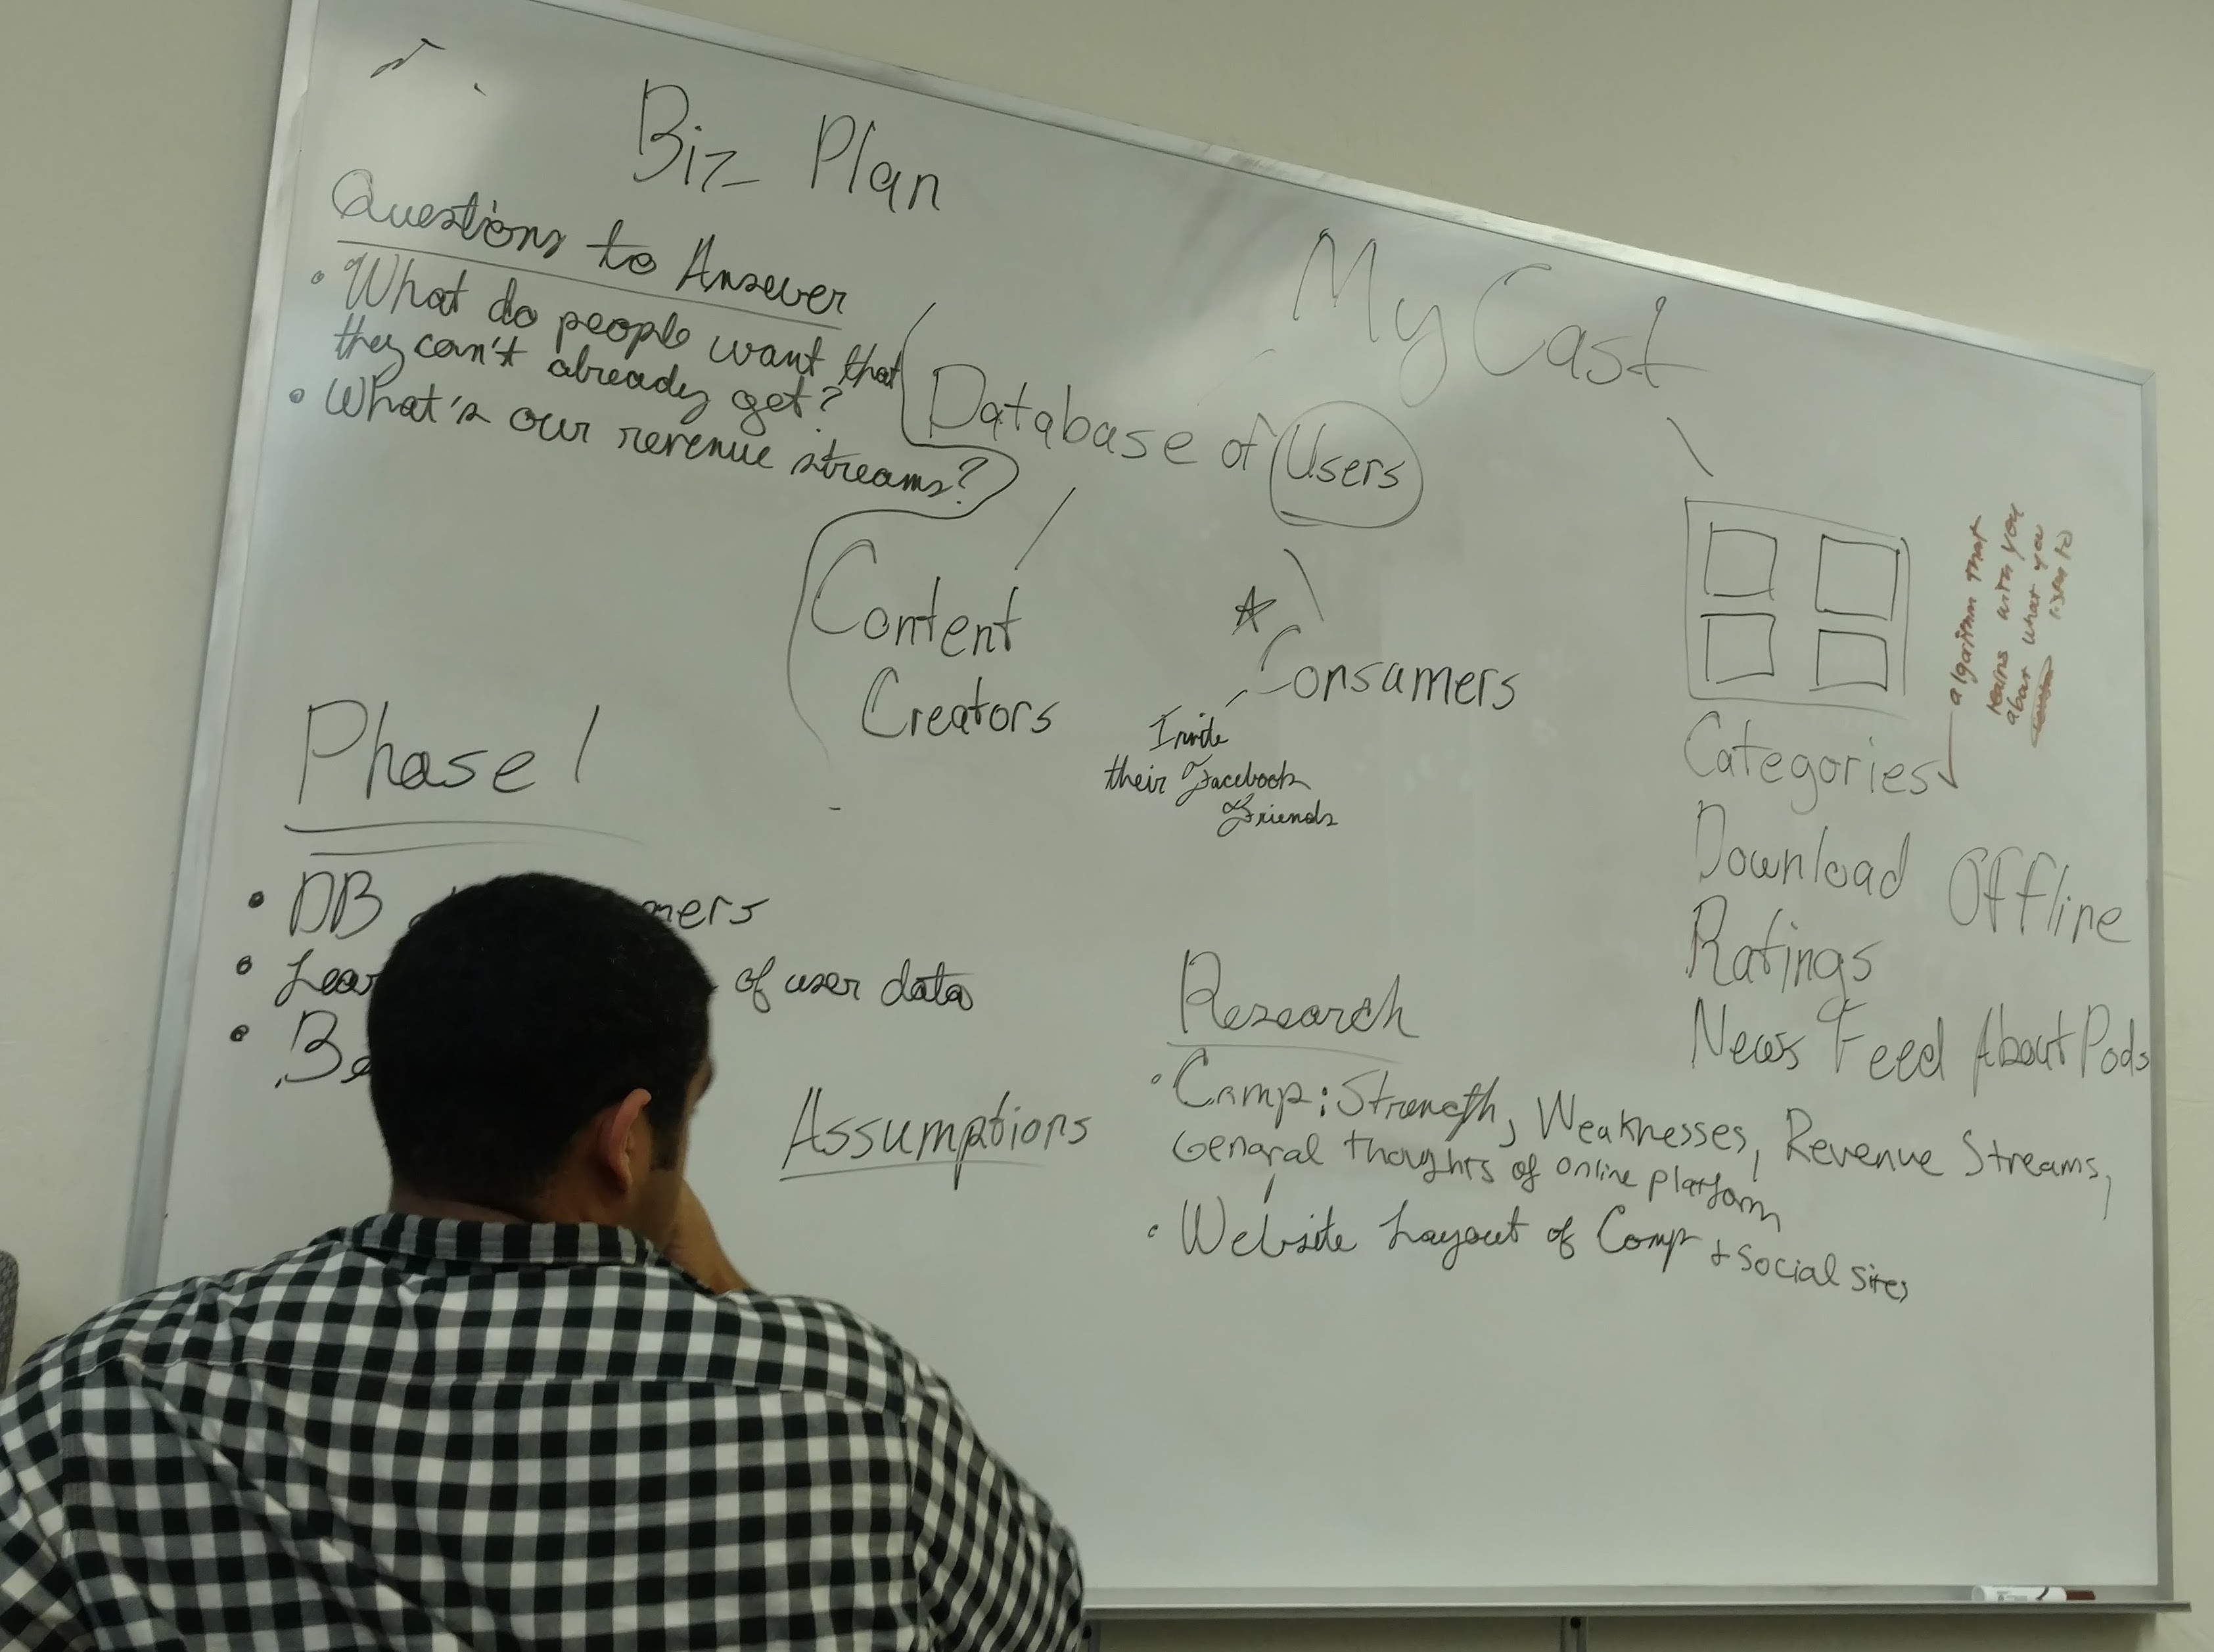 Biz Plan
Questions to Answer
• What do people want that
they can't already get?
• What's our revenue streams?
My Cast
Database of Users
Content
Creators
Consumers
Invite
their Facebook
Friends
algorithm that
learns with you
about what you
listen to
Categories
Download Offline
Ratings
News Feed About Pods
Phase 1
• DB
• of user data
•
Assumptions
Research
• Comp: Strength, Weaknesses, Revenue Streams,
General thoughts of online platform
• Website Layout of Comp + social sites